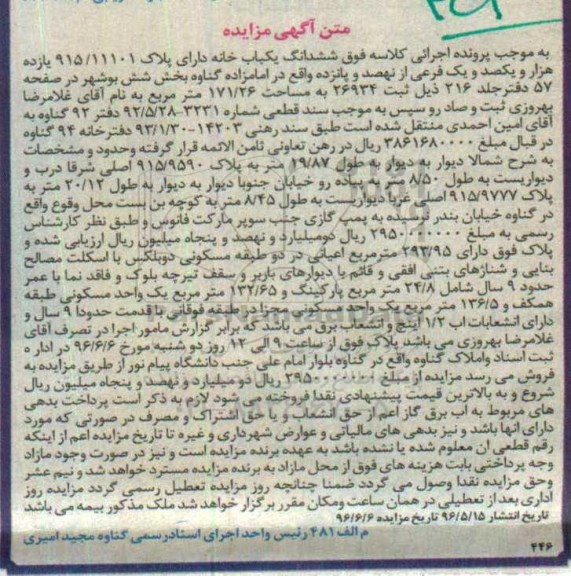 متن آگهی مزایده
به موجب پرونده اجرائی کلاسه فوق ششدانگ یکباب خانه دارای پلاک ۹۱۵/۱۱۱۰۱ یازده
هزار و یکصد و یک فرعی از نهصد و پانزده واقع در امامزاده گناوه بخش شش بوشهر در صفحه
۵۷ دفترجلد ۲۱۶ ذیل ثبت ۲۶۹۳۴ به مساحت ۱۷۱/۲۶ متر مربع به نام آقای غلامرضا
بهروزی ثبت و صادرو سپس به موجب سند قطعی شماره ۳۲۳۱-۹۲/۵/۲۸ دفتر ۹۲ گناوه به
آقای امین احمدی منتقل شده است طبق سند رهنی ۱۴۲۰۳-۹۳/۱/۳۰ دفترخانه ۹۴ گناوه
در قبال مبلغ ۳۸۶۱۶۸۰۰۰۰ ریال در رهن تعاونی ثامن الائمه قرار گرفته وحدود و مشخصات
به شرح شمالا دیوار به دیوار به طول ۱۹/۸۷ متر به پلاک ۹۱۵/۹۵۹۰ اصلی شرقا درب و
دیواریست به طول ۸/۵۰ متر به پیاده رو خیابان جنوبا دیوار به دیوار به طول ۲۰/۱۲ متر به
پلاک ۹۱۵/۹۷۷۷ اصلی غربا دیواریست به طول ۸/۴۵ متر به کوچه بن بست محل وقوع واقع
در گناوه خیابان بندر نرسیده به پمپ گازی جنب سوپر مارکت فانوس و طبق نظر کارشناس
رسمی به مبلغ ۲۹۵۰۰۰۰۰۰۰ ریال دومیلیارد و نهصد و پنجاه میلیون ریال ارزیابی شده و
پلاک فوق دارای ۲۹۳/۹۵ مترمربع اعیانی در دو طبقه مسکونی دوبلکس با اسکلت مصالح
بنایی و شناژهای بتنی افقی و قائم با دیوارهای باربر و سقف تیرچه بلوک و فاقد نما با عمر
حدود ۹ سال شامل ۲۴/۸ متر مربع پارکینگ و ۱۳۲/۶۵ متر مربع یک واحد مسکونی طبقه
همکف و ۱۳۶/۵ متر مربع یک واحد مسکونی مجزا در طبقه فوقانی با قدمت حدودا ۹ سال و
دارای انشعابات اب ۱/۲ اینچ و انشعاب برق می باشد که برابر گزارش مامور اجرا در تصرف آقای
غلامرضا بهروزی می باشد پلاک فوق از ساعت ۹ الی ۱۲ روز دو شنبه مورخ ۹۶/۶/۶ در اداره
ثبت اسناد واملاک گناوه واقع در گناوه بلوار امام علی جنب دانشگاه پیام نور از طریق مزایده به
فروش می رسد مزایده از مبلغ ۲۹۵۰۰۰۰۰۰۰ ریال دو میلیارد و نهصد و پنجاه میلیون ریال
شروع و به بالاترین قیمت پیشنهادی نقدا فروخته می شود لازم به ذکر است پرداخت بدهی
های مربوط به اب برق گاز اعم از حق انشعاب و یا حق اشتراک و مصرف در صورتی که مورد
دارای انها باشد و نیز بدهی های مالیاتی و عوارض شهرداری و غیره تا تاریخ مزایده اعم از اینکه
رقم قطعی ان معلوم شده یا نشده باشد به عهده برنده مزایده است و نیز در صورت وجود مازاد
وجه پرداختی بابت هزینه های فوق از محل مازاد به برنده مزایده مسترد خواهد شد و نیم عشر
وحق مزایده نقدا وصول می گردد ضمنا چنانچه روز مزایده تعطیل رسمی گردد مزایده روز
اداری بعد از تعطیلی در همان ساعت ومکان مقرر برگزار خواهد شد ملک مذکور بیمه می باشد
تاریخ انتشار ۹۶/۵/۱۵ تاریخ مزایده ۹۶/۶/۶
م الف ۴۸۱ رئیس واحد اجرای اسناد رسمی گناوه مجید امیری
۴۴۶